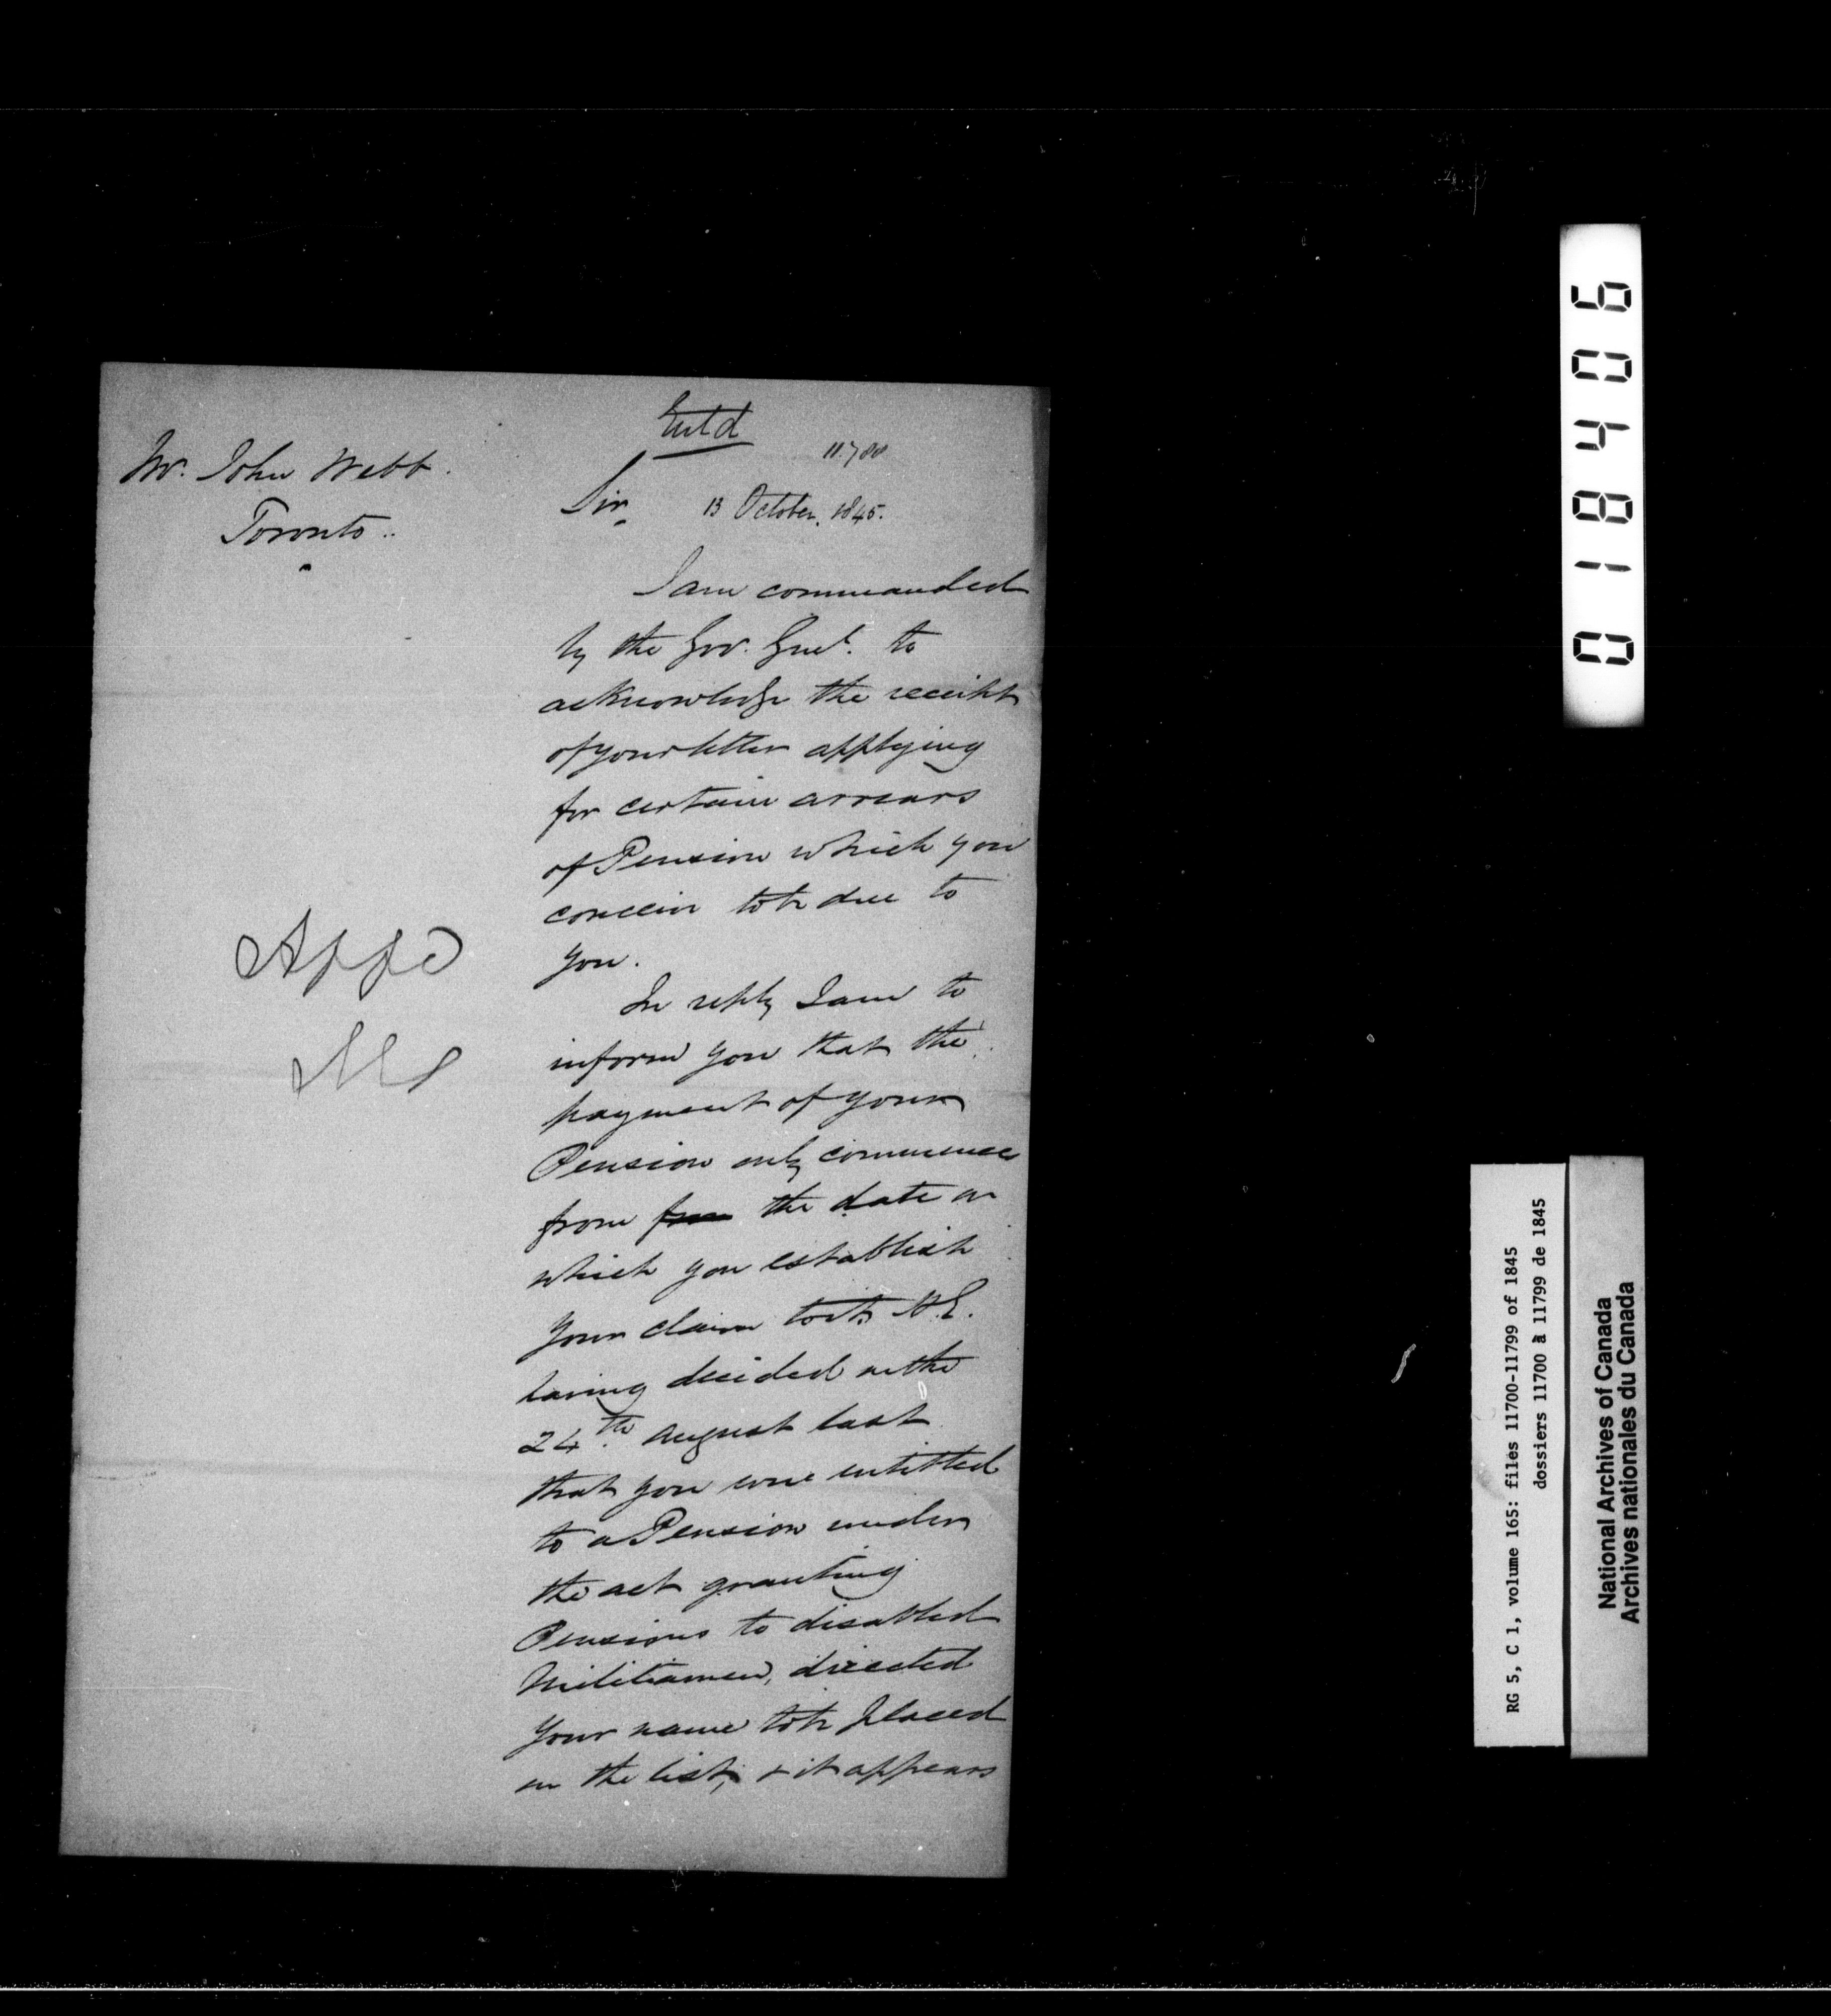 Entd
11.788
Mr. John Webb.
Toronto.
Sir, 13 October, 1845.
I am commanded
by the Gov. Genl. to
acknowledge the receipt
of your letter applying
for certain arrears
of Pension which you
conceive to be due to
you.
In reply I am to
inform you that the
payment of your
Pension only commences
from from the date on
which you establish
your claim to it, H.E.
having decided on the
24th August last
that you were entitled
to a Pension under
the act granting
Pensions to disabled
Militiamen, directed
your name to be placed
on the list, & it appears
Appd
018406
RG 5, C 1, volume 165: files 11700-11799 of 1845
dossiers 11700 à 11799 de 1845
National Archives of Canada
Archives nationales du Canada